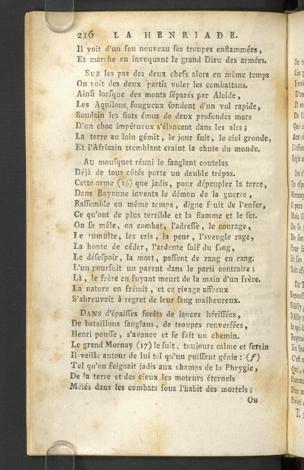 216 LA HENRIADE.
Il voit d'un feu nouveau ses troupes enflammées,
Et marche en invoquant le grand Dieu des armées.
SUR les pas des deux chefs alors en même temps
On voit des deux partis voler les combattans.
Ainsi lorsque des monts séparés par Alcide,
Les Aquilons fougueux fondent d'un vol rapide,
Soudain les flots émus de deux profondes mers
D'un choc impétueux s'élancent dans les airs ;
La terre au loin gémit, le jour fuit, le ciel gronde,
Et l'Africain tremblant craint la chute du monde.
AU mousquet réuni le sanglant coutelas
Déjà de tous côtés porte un double trépas.
Cette arme (16) que jadis, pour dépeupler la terre,
Dans Bayonne inventa le démon de la guerre,
Rassemble en même temps, digne fruit de l'enfer,
Ce qu'ont de plus terrible et la flamme et le fer.
On se mêle, on combat, l'adresse, le courage,
Le tumulte, les cris, la peur, l'aveugle rage,
La honte de céder, l'ardente soif du sang,
Le désespoir, la mort, passent de rang en rang.
L'un poursuit un parent dans le parti contraire ;
Là, le frère en fuyant meurt de la main d'un frère.
La nature en frémit, et ce rivage affreux
S'abreuvait à regret de leur sang malheureux.
DANS d'épaisses forêts de lances hérissées,
De bataillons sanglans, de troupes renversées,
Henri pousse, s'avance et se fait un chemin.
Le grand Mornay (17) le suit, toujours calme et serein
Il veille autour de lui tel qu'un puissant génie : (f)
Tel qu'on feignait jadis aux champs de la Phrygie,
De la terre et des cieux les moteurs éternels
Mêlés dans les combats sous l'habit des mortels ;
Ou